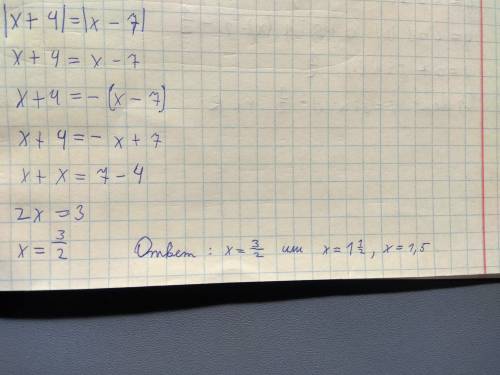 |x + 4| = |x - 7|
x + 4 = x - 7
x + 4 = - (x - 7)
x + 4 = - x + 7
x + x = 7 - 4
2x = 3
x = 3/2
Ответ : x = 3/2 или x = 1 1/2, x = 1,5